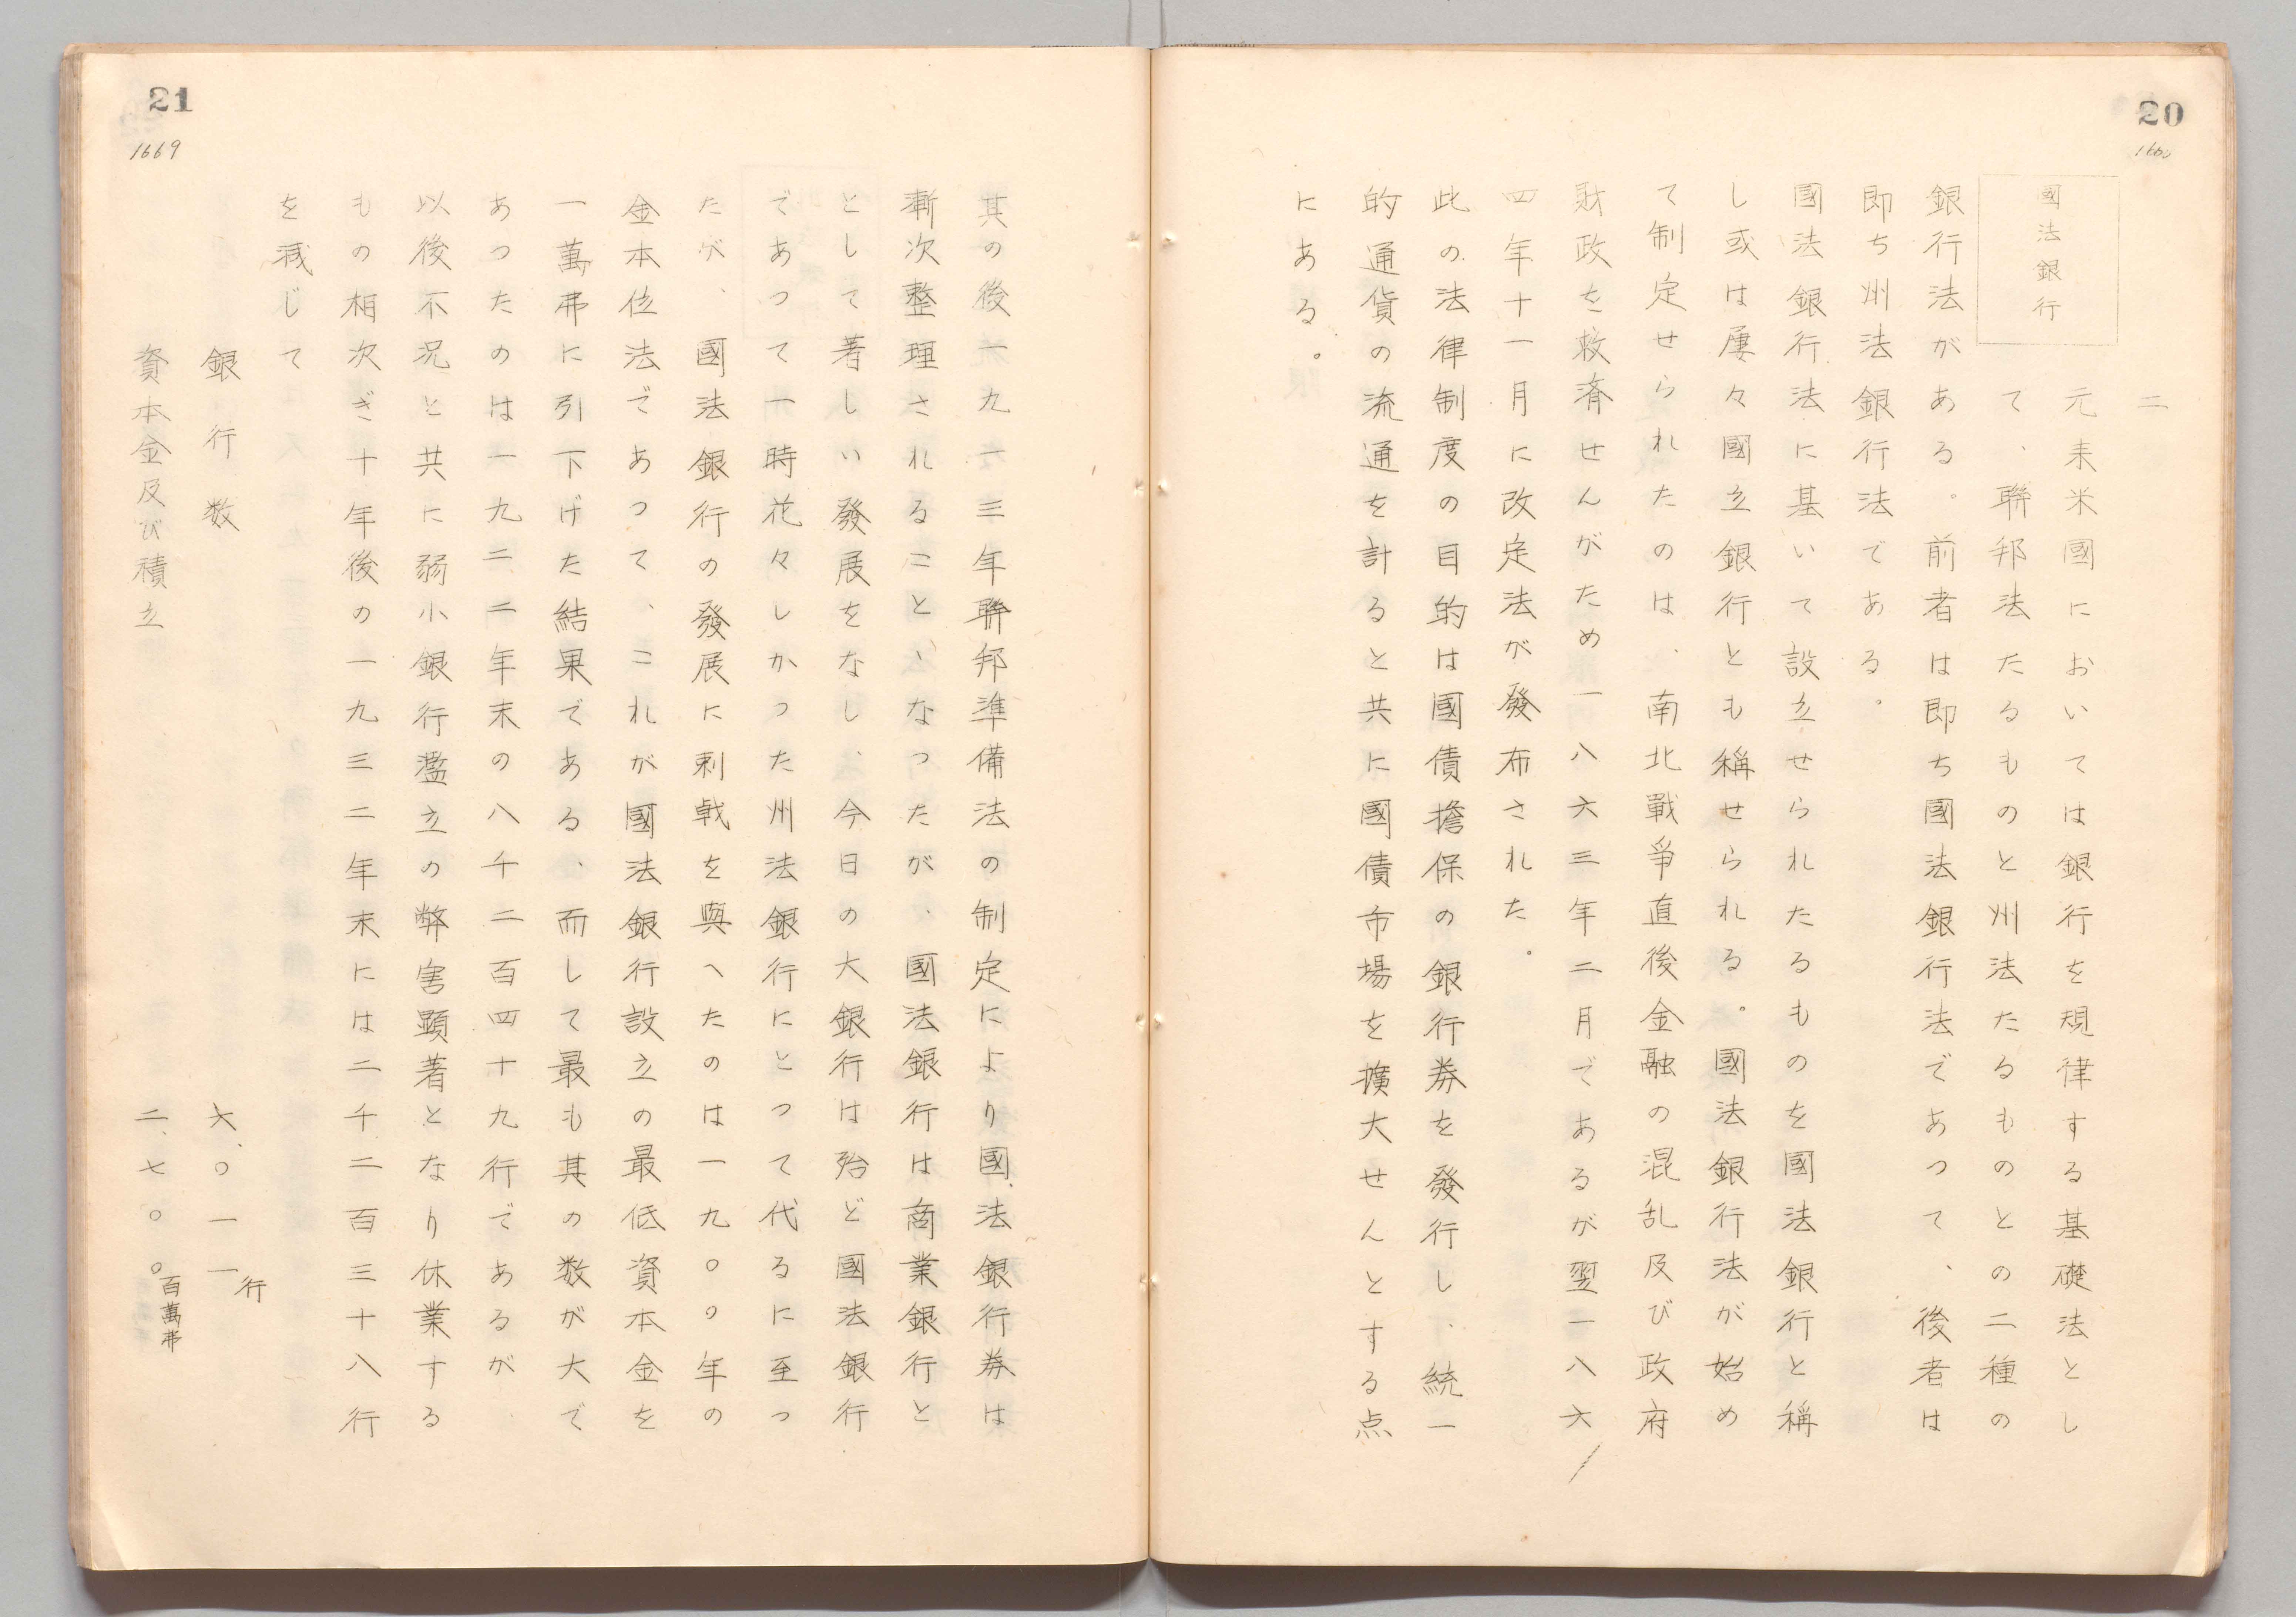 20
二
國法銀行
元来米國においては銀行を規律する基礎法とし
て、聯邦法たるものと州法たるものとの二種の
銀行法がある。前者は即ち國法銀行法であつて、後者は
即ち州法銀行法である。
國法銀行法に基いて設立せられたるものを國法銀行と稱
し或は屡々國立銀行とも稱せられる。國法銀行法が始め
て制定せられたのは、南北戰爭直後金融の混乱及び政府
財政を救済せんがため一八六三年二月であるが翌一八六
四年十一月に改定法が發布された。
此の法律制度の目的は國債擔保の銀行券を發行し、統一
的通貨の流通を計ると共に國債市場を擴大せんとする点
にある。
21
1669
其の後一九一三年聯邦準備法の制定により國法銀行券は
漸次整理されることゝなつたが、國法銀行は商業銀行と
として著しい發展をなし、今日の大銀行は殆ど國法銀行
であつて一時花々しかつた州法銀行にとつて代るに至つ
たが、國法銀行の發展に刺戟を與へたのは一九〇〇年の
金本位法であつて、これが國法銀行設立の最低資本金を
一萬弗に引下げた結果である、而して最も其の数が大で
あつたのは一九二二年末の八千二百四十九行であるが
以後不況と共に弱小銀行濫立の弊害顕著となり休業する
もの相次ぎ十年後の一九三二年末には二千二百三十八行
を減じて
銀行数 六、〇一一行
資本金及び積立 二、七〇〇百萬弗